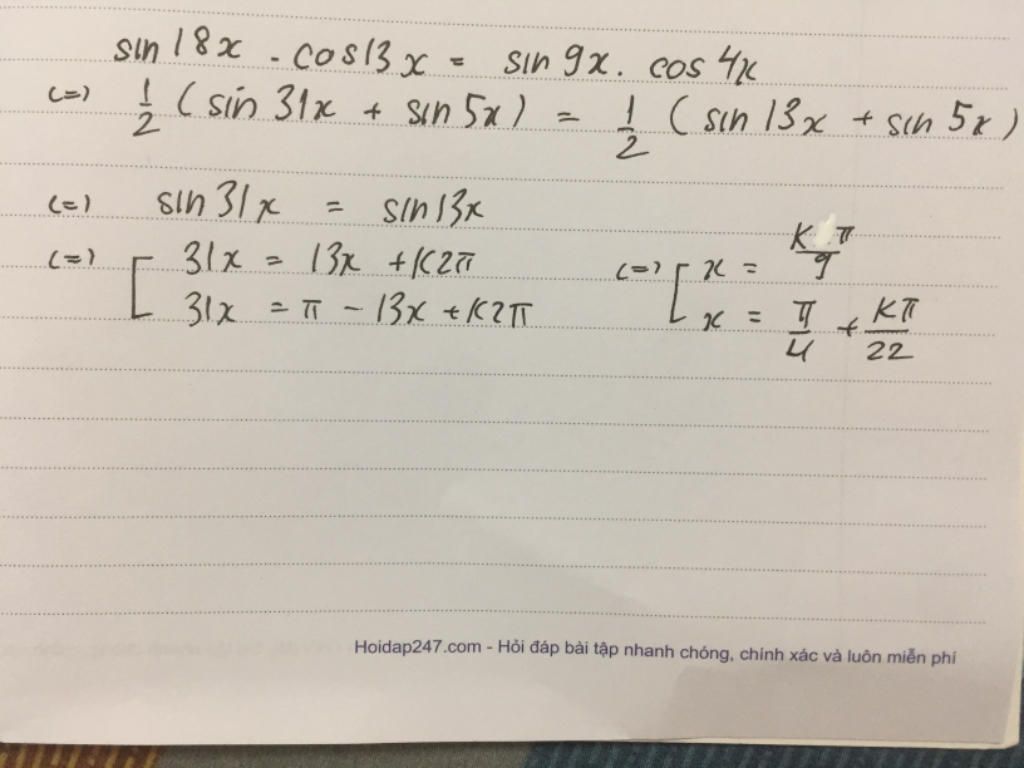 sin 18x . cos13x = sin 9x. cos 4x
(=) 1/2 ( sin 31x + sin 5x ) = 1/2 ( sin 13x + sin 5x )
(=) sin 31x = sin 13x
(=) [ 31x = 13x + K2π
31x = π - 13x + K2π
(=) [ x = Kπ/9
x = π/4 + Kπ/22
Hoidap247.com - Hỏi đáp bài tập nhanh chóng, chính xác và luôn miễn phí